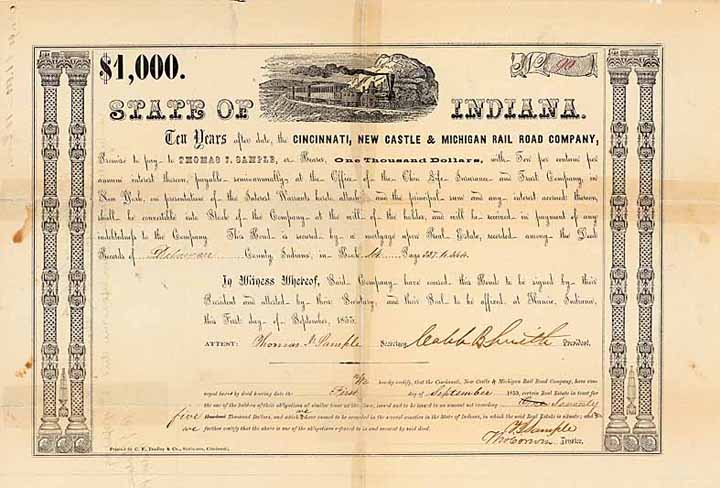 $1,000.
STATE OF INDIANA.
Ten Years after date, the CINCINNATI, NEW CASTLE & MICHIGAN RAIL ROAD COMPANY,
Promise to pay to THOMAS J. SAMPLE, or Bearer, One Thousand Dollars, with Ten per centum per
annum interest thereon, payable semi-annually at the Office of the Ohio Life Insurance and Trust Company, in
New York, on presentation of the Interest Warrants hereto attached and the principal sum and any interest accrued thereon,
shall be convertible into Stock of the Company at the will of the holder, and will be received in payment of any
indebtedness to the Company. This Bond is secured by a mortgage upon Real Estate, recorded among the Deed
Records of Delaware County, Indiana, in Book Page
In Witness Whereof, Said Company have caused this Bond to be signed by their
President and attested by their Secretary, and their Seal to be affixed, at Muncie, Indiana,
this First day of September, 1853.
ATTEST: Thomas J. Sample Secretary. Caleb B Smith President.
We hereby certify, that the Cincinnati, New Castle & Michigan Rail Road Company, have con-
veyed to us by deed bearing date the First day of September 1853, certain Real Estate in trust for
the use of the holders of their obligations of similar tenor as the above, issued and to be issued to an amount not exceeding Seventy
five Thousand Dollars, and which we have caused to be recorded in the several counties in the State of Indiana, in which the said Real Estate is situate; and
we further certify that the above is one of the obligations referred to in and secured by said deed.
Sample
Tho Corwin Trustee.
Printed by C. F. Bradley & Co., Stationers, Cincinnati.